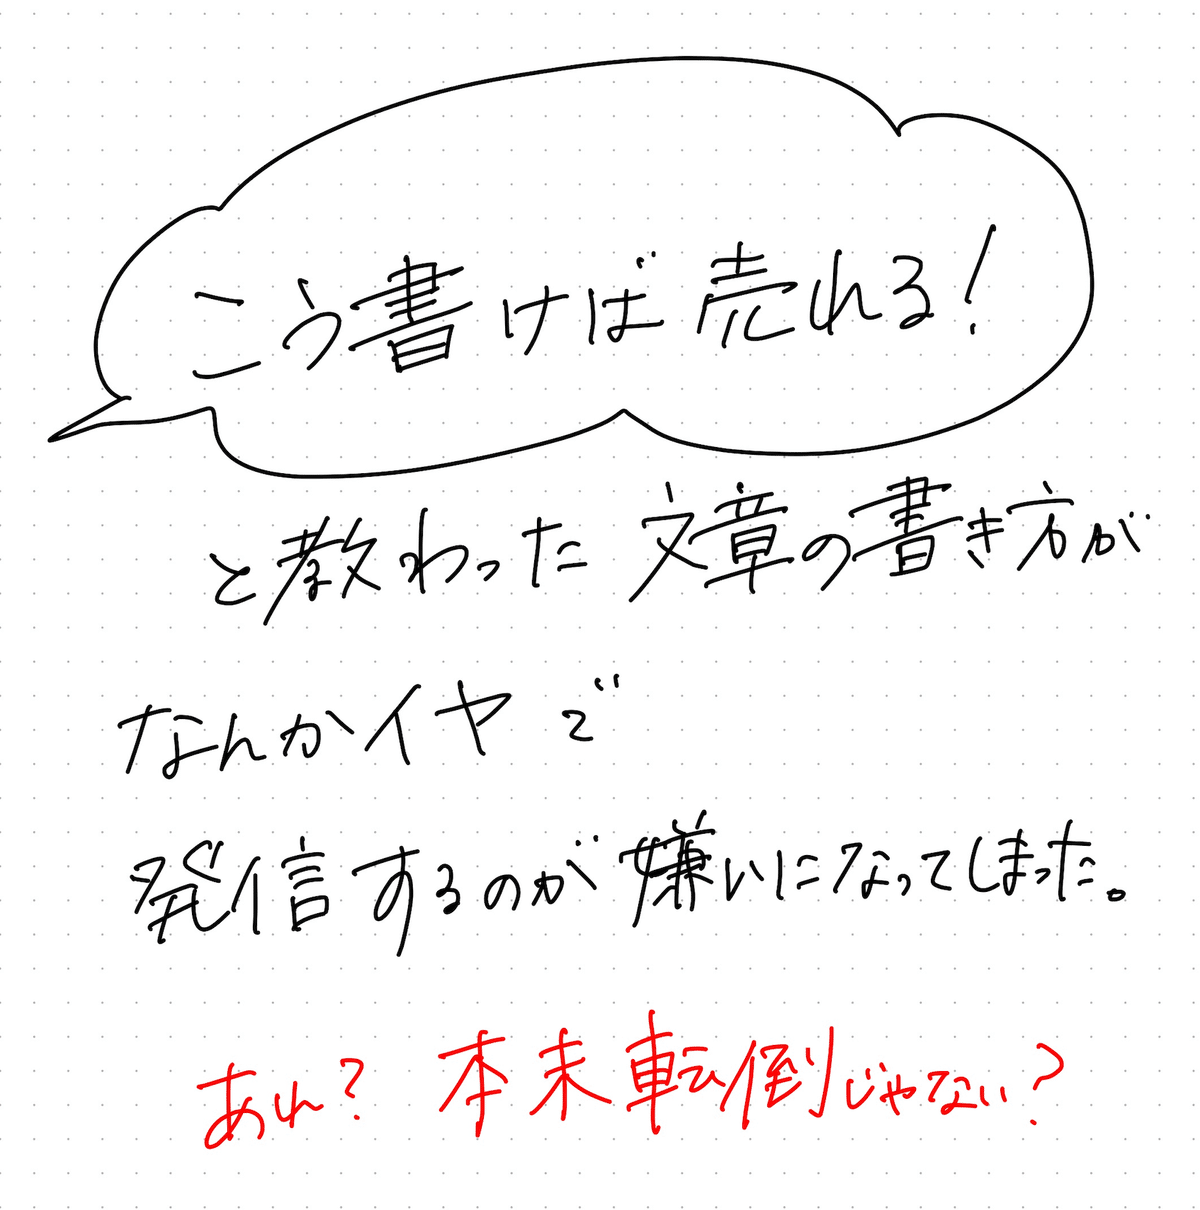 こう書けば売れる!
と教わった文章の書き方が
なんかイヤで
発信するのが嫌いになってしまった。
あれ?本末転倒じゃない?